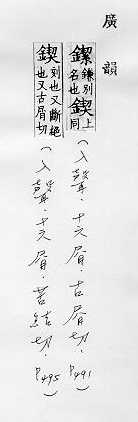 廣韻
鎌別名也鍥上同(入聲.十六屑.古屑切.P491)
鍥刻也又斷絕也又古屑切(入聲.十六屑.苦結切.P495)